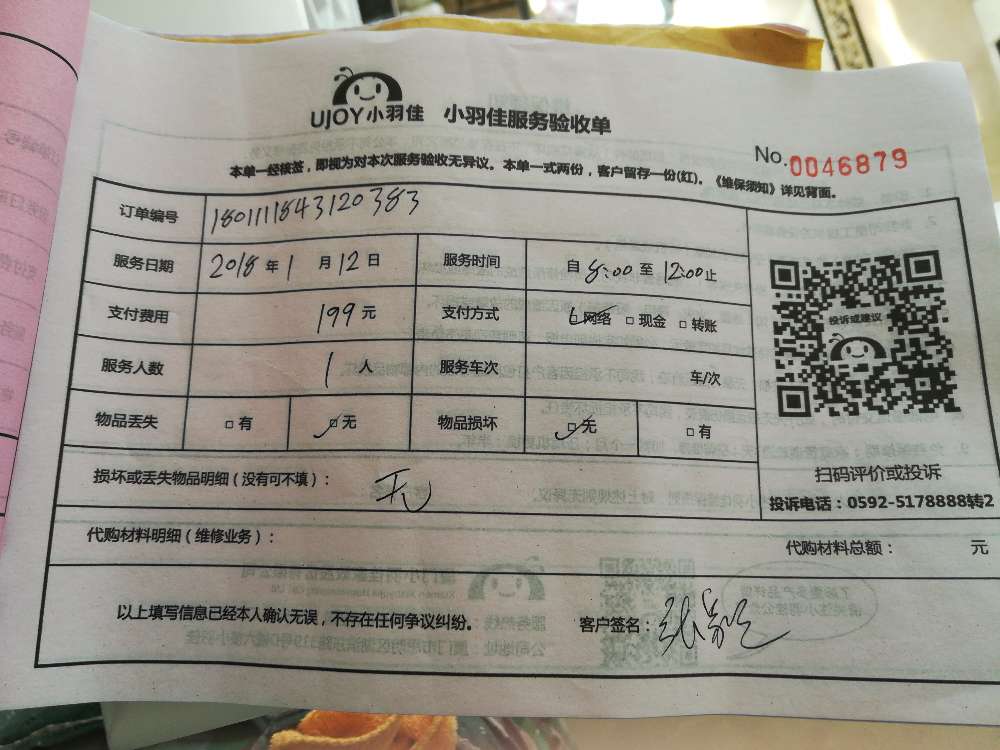 UJOY小羽佳 小羽佳服务验收单
No.0046879
本单一经核签，即视为对本次服务验收无异议。本单一式两份，客户留存一份(红)。《维保须知》详见背面。
订单编号 1801111843120383
服务日期 2018年1月12日 服务时间 自8:00至12:00止
支付费用 199元 支付方式 □网络 □现金 □转账
服务人数 1人 服务车次 车/次
物品丢失 □有 □无 物品损坏 □无 □有
投诉或建议
扫码评价或投诉
投诉电话：0592-5178888转2
损坏或丢失物品明细（没有可不填）： 无
代购材料明细（维修业务）： 代购材料总额： 元
以上填写信息已经本人确认无误，不存在任何争议纠纷。 客户签名：